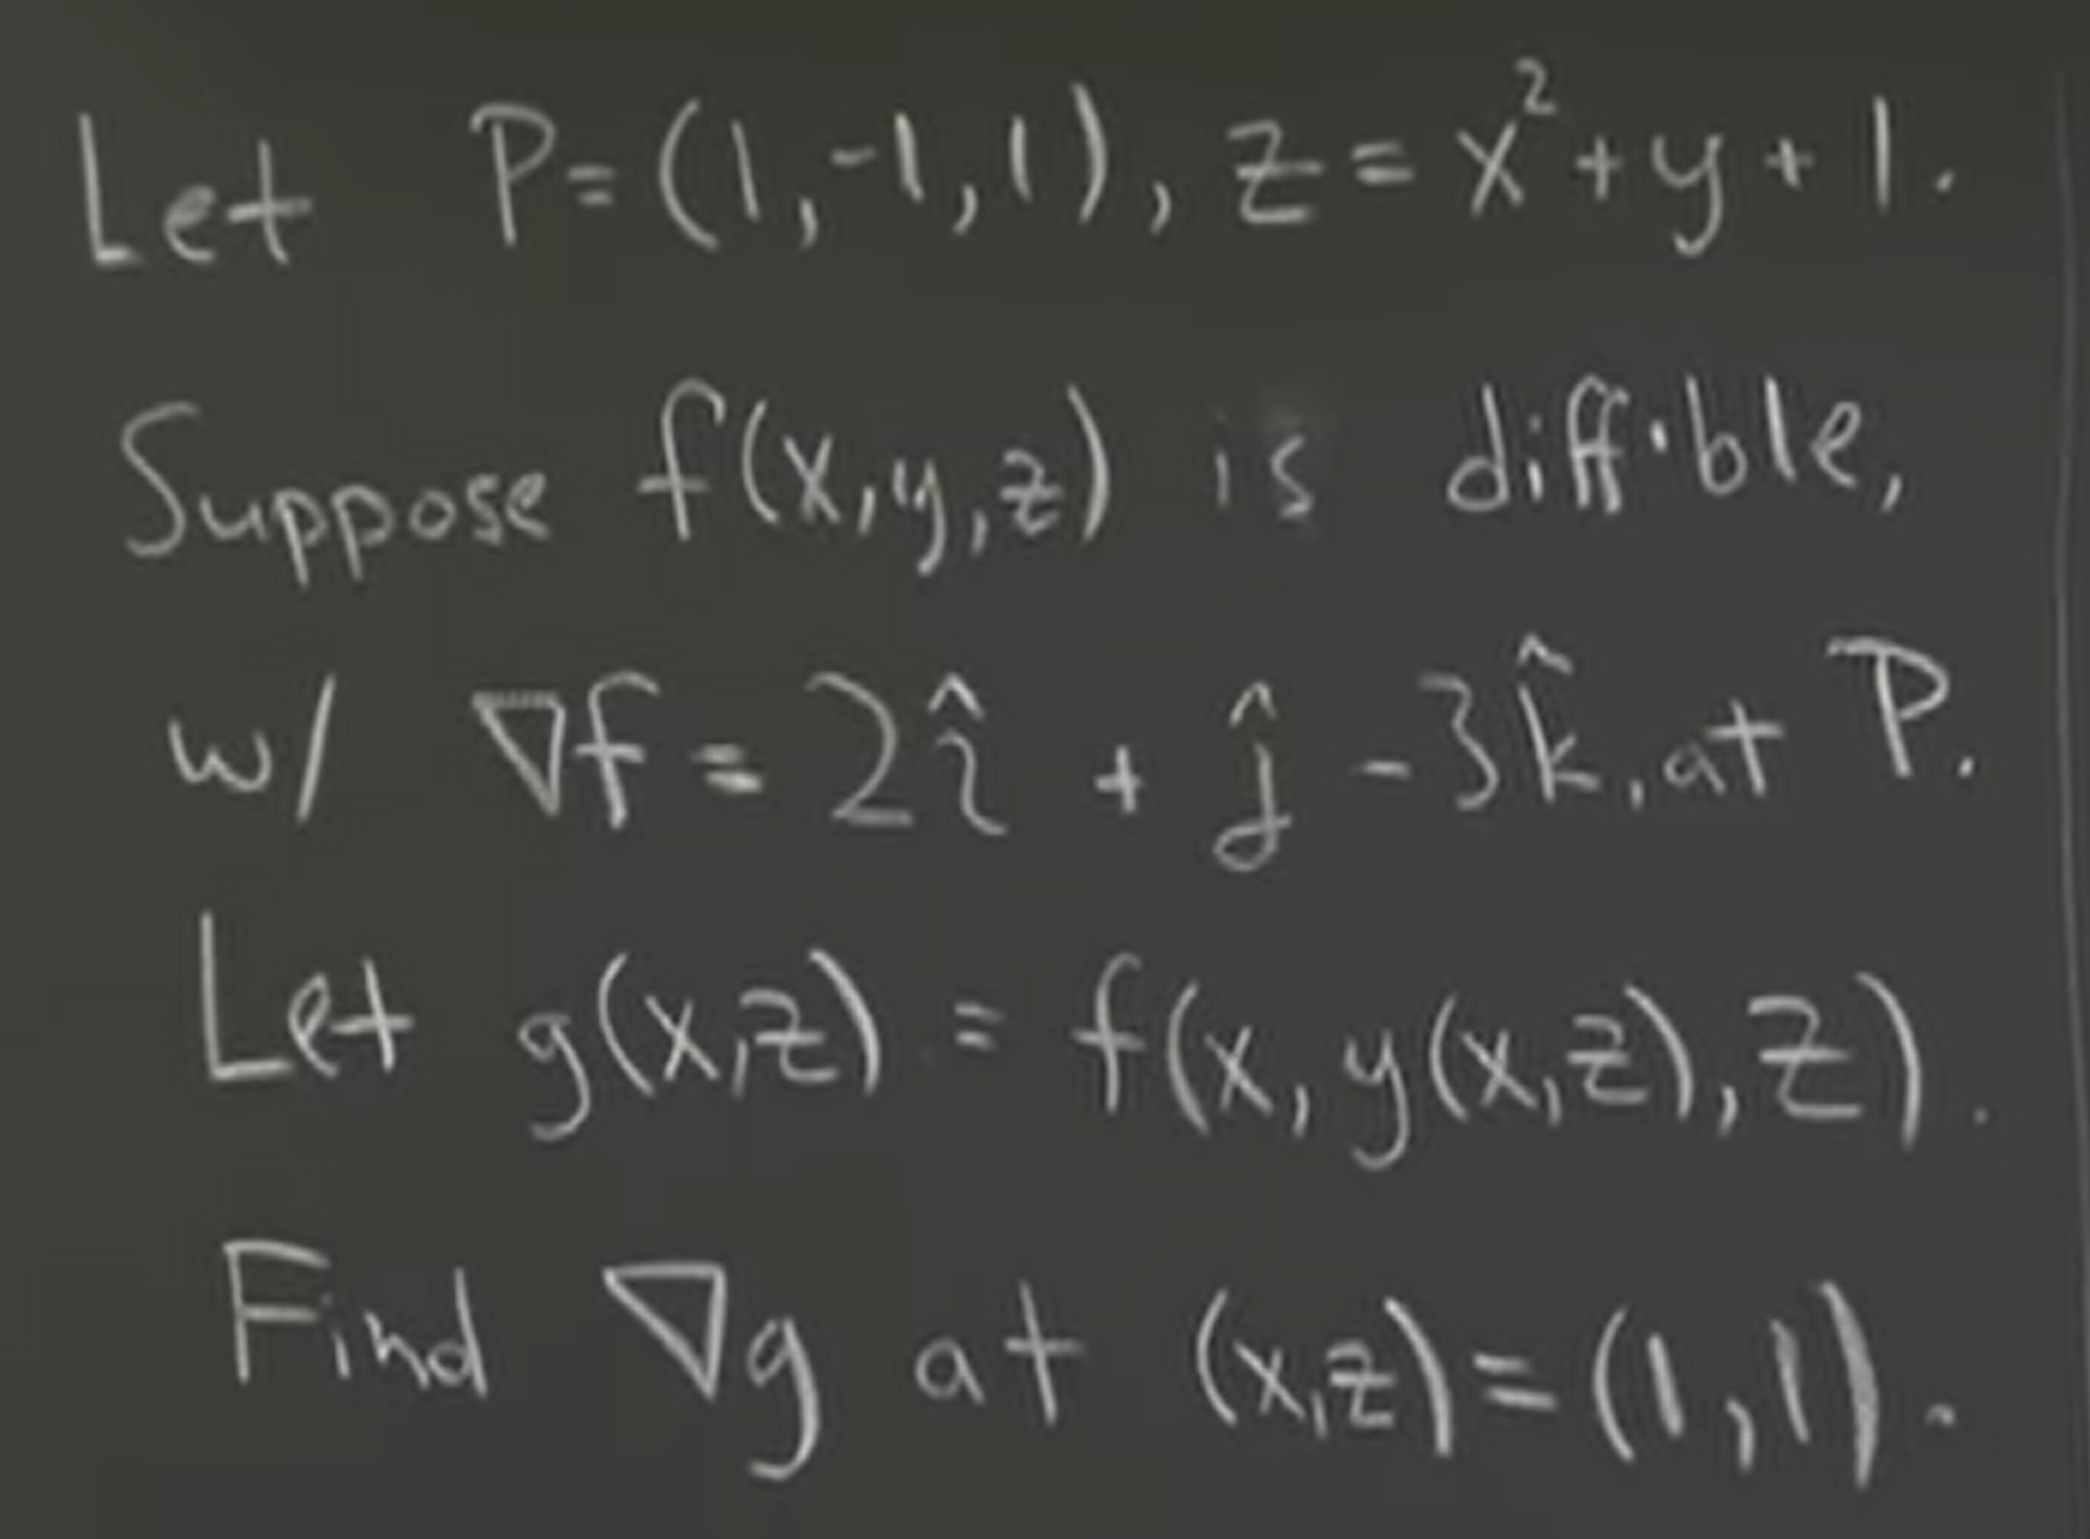 Let P=(1,-1,1), z=x²+y+1.
Suppose f(x,y,z) is diff'ble,
w/ ∇f = 2î + ĵ -3k̂, at P.
Let g(x,z) = f(x, y(x,z), z).
Find ∇g at (x,z)=(1,1).